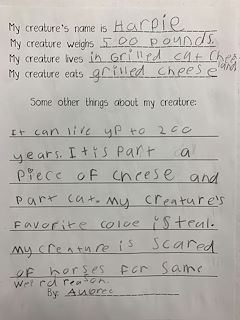 My creature's name is Harpie
My creature weighs 500 pounds.
My creature lives in grilled cat Chees land
My creature eats grilled cheese
Some other things about my creature:
It can live up to 200
years. It is part a
piece of cheese and
part cat. My creature's
favorite coloe is teal.
My creature is scared
of horses for same
weird reason.
By: Aubree